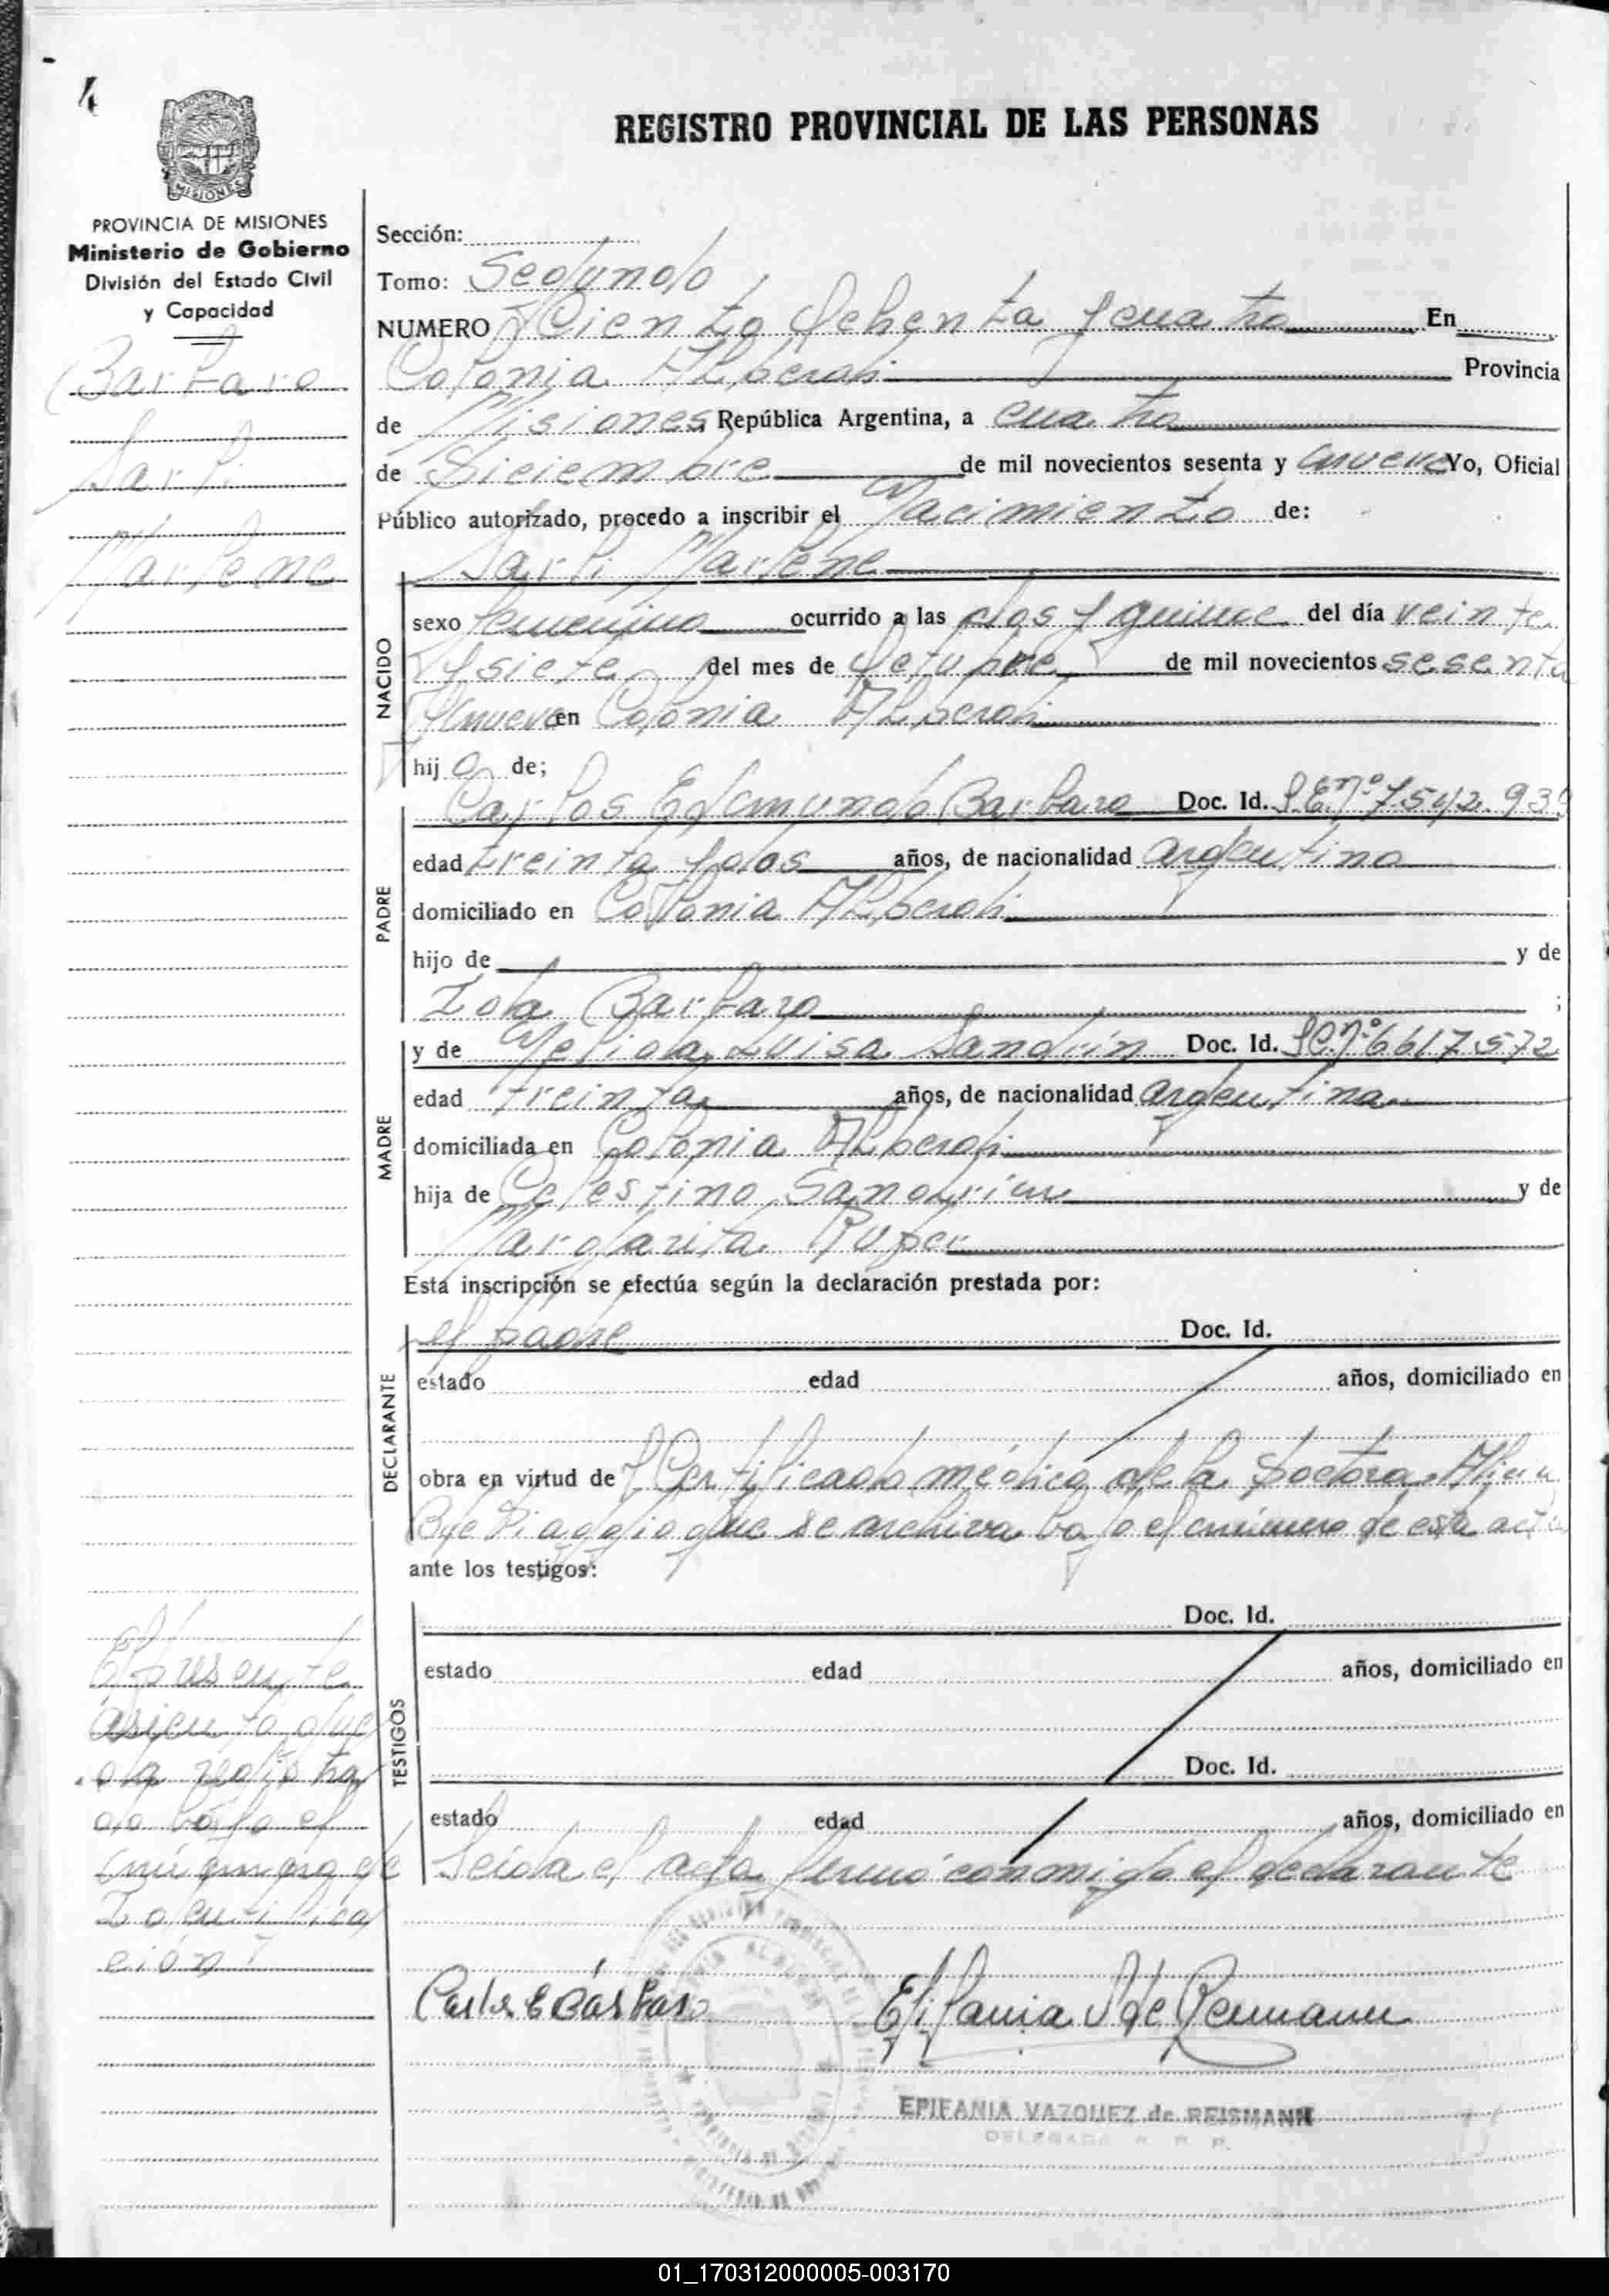 4
REGISTRO PROVINCIAL DE LAS PERSONAS
MISIONES
PROVINCIA DE MISIONES
Ministerio de Gobierno
División del Estado Civil
y Capacidad
Barbaro
Sarli
Marlene
Sección:
Tomo: Segundo
NUMERO Ciento Ochenta y cuatro En
Colonia Alberdi Provincia
de Misiones República Argentina, a cuatro
de Diciembre de mil novecientos sesenta y nueve Yo, Oficial
Público autorizado, procedo a inscribir el Nacimiento de:
Sarli Marlene
NACIDO
sexo femenino ocurrido a las dos y quince del día veinte
y siete del mes de Octubre de mil novecientos sesenta
y nueve en Colonia Alberdi
hija de;
PADRE
Carlos Edmundo Barbaro Doc. Id. L.E.nº 7.542.939
edad treinta y dos años, de nacionalidad argentino
domiciliado en Colonia Alberdi
hijo de y de
Ida Barbaro ;
MADRE
y de Nelida Luisa Sandrin Doc. Id. L.C.nº 6617.572
edad treinta años, de nacionalidad argentina
domiciliada en Colonia Alberdi
hija de Celestino Sandrin y de
Margarita
Esta inscripción se efectúa según la declaración prestada por:
DECLARANTE
el padre Doc. Id.
estado edad años, domiciliado en
obra en virtud de Certificado médico de la Doctora Alicia
que se archiva bajo el número de ésta acta
ante los testigos:
TESTIGOS
Doc. Id.
estado edad años, domiciliado en
Doc. Id.
estado edad años, domiciliado en
Leida el acta firmó conmigo el declarante
El presente
asiento que
da registra
do bajo el
número de
Identifica
ción
Carlos E Bárbaro
Epifania V de Reismann
EPIFANIA VAZQUEZ de REISMANN
DELEGADA R. P. P.
01_170312000005-003170